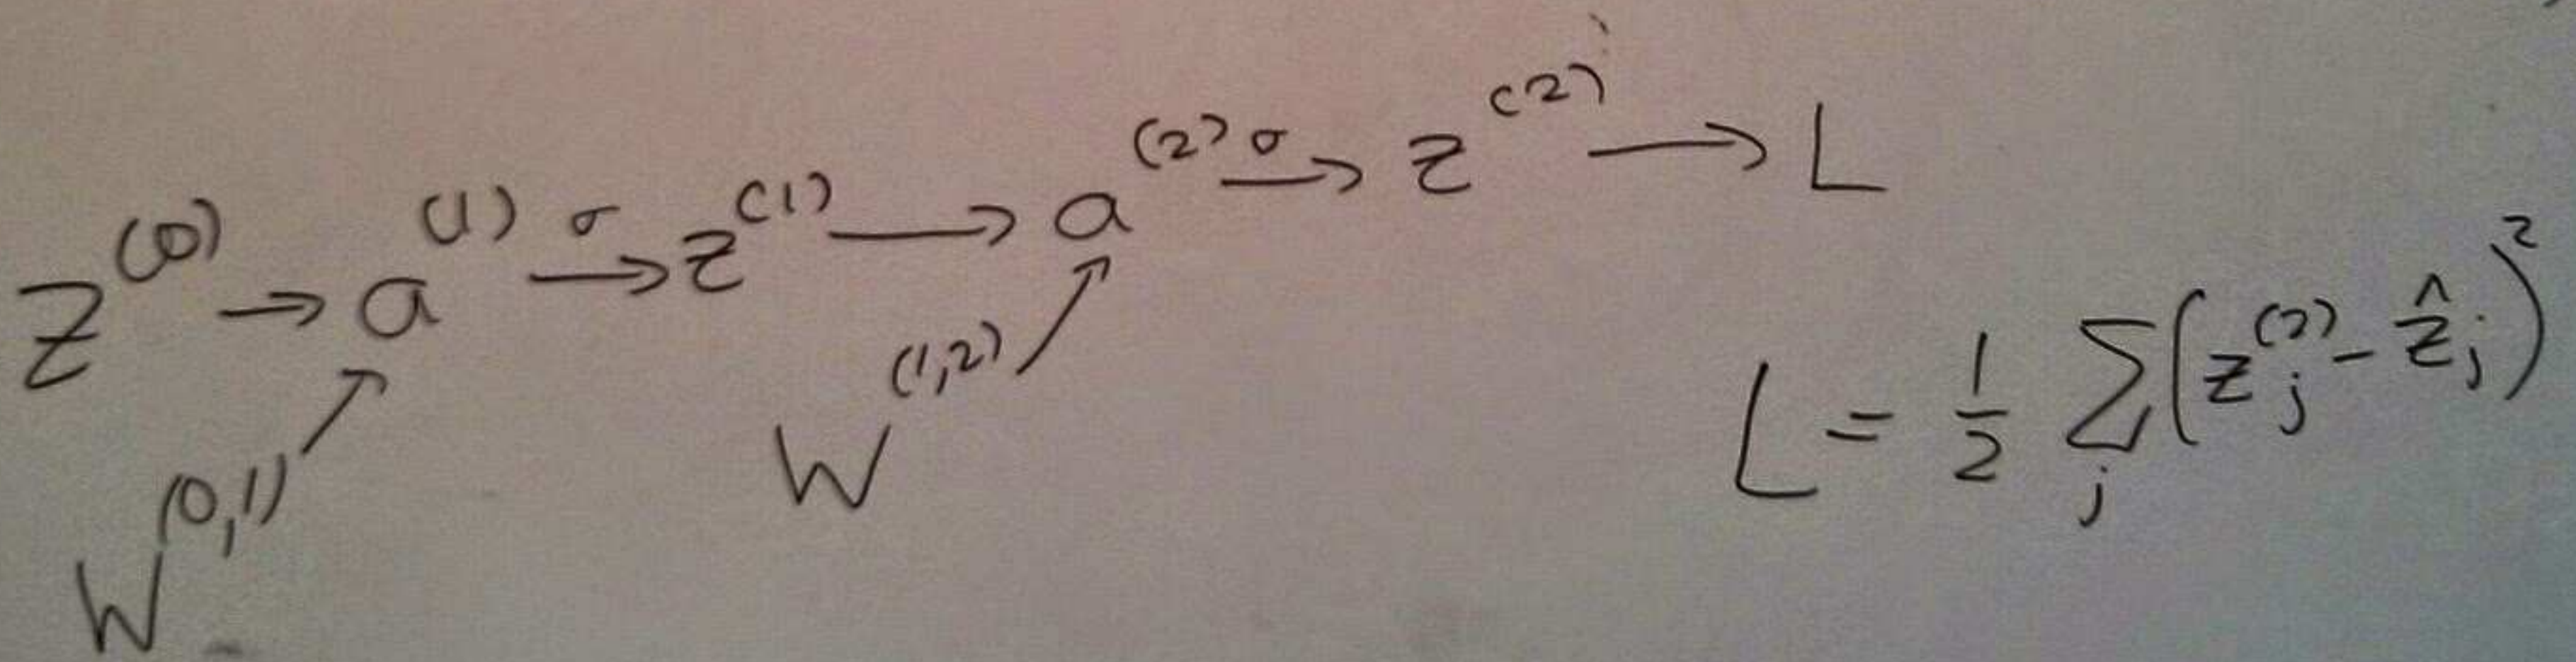 z^(0) → a^(1) σ→ z^(1) → a^(2) σ→ z^(2) → L
W^(0,1) ↗ W^(1,2) ↗
L = 1/2 Σ_j (z_j^(2) - ẑ_j)^2